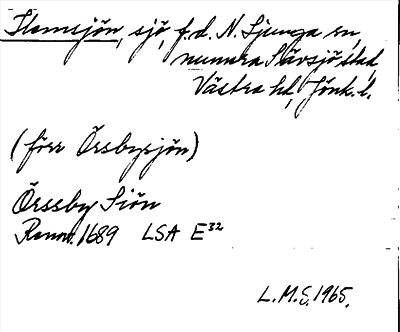 Hemsjön, sjö, f.d. N. Ljunga sn,
numera Sävsjö stad,
Västra hd, Jönk. l.
(förr Örsbysjön)
Örssby Siön
Rannr. 1689 LSA E³²
L.M.S. 1965.